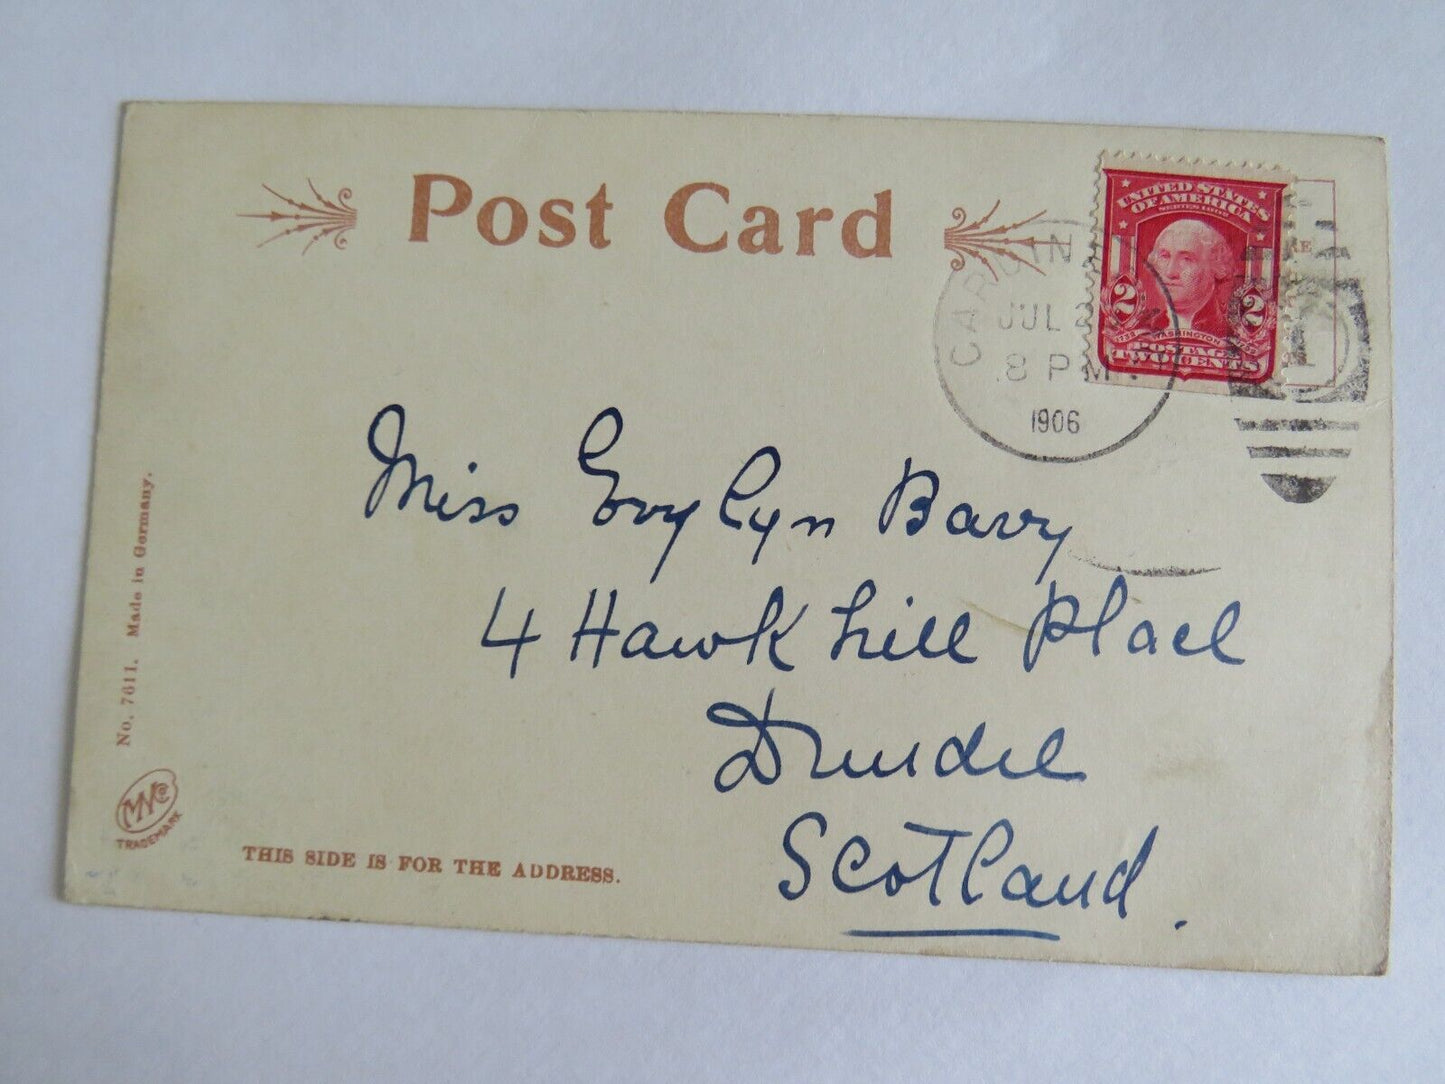 Post Card
UNITED STATES
OF AMERICA
SERIES 1902
2 2
WASHINGTON
POSTAGE
TWO CENTS
JUL
8 PM
1906
1
Miss Evylyn Barry
4 Hawkhill Place
Dundee
Scotland.
No. 7611. Made in Germany.
TRADEMARK
THIS SIDE IS FOR THE ADDRESS.